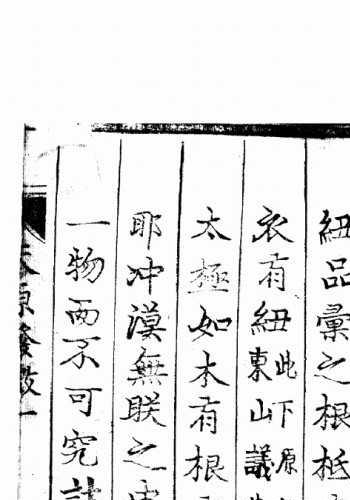 紐品彙之根柢
衣有紐此下原東山議
太極如木有根
耶冲漠無朕之
一物而不可究
天原發微一